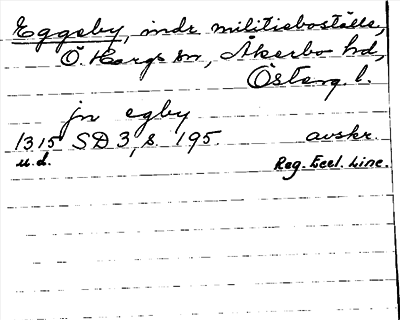 Eggeby, indr. militieboställe,
Ö. Hargs sn, Åkerbo hd,
Österg. l.
jn egby
1315 SD 3, s. 195. avskr.
u.d. Reg. Eccl. Linc.